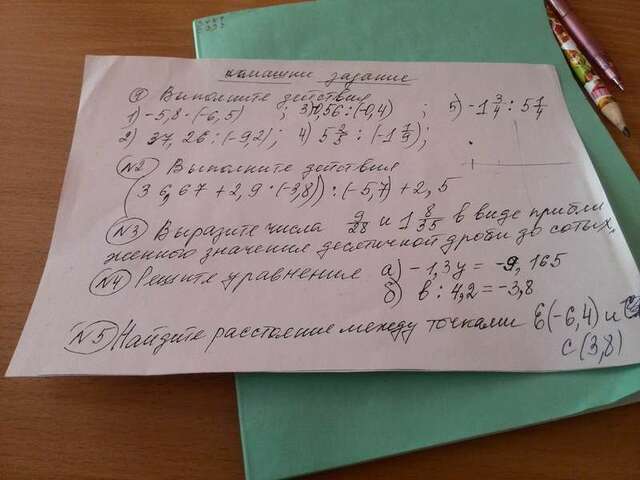 домашни задание
① Выполните действия
1) -5,8·(-6,5) ; 3) 1,56:(-0,4) ; 5) -1 3/4 : 5 1/4
2) 37,26:(-9,2); 4) 5 3/5 : (-1 1/9);
№2 Выполните действия
(36,67+2,9·(-3,8)):(-5,7)+2,5
№3 Выразите числа 9/28 и 1 8/35 в виде прибли
женного значения десятичной дроби до сотых,
№4 Решите уравнение а) -1,3y = -9,165
б) в:4,2 = -3,8
№5 Найдите расстояние между точками Е(-6,4) и
С(3,8)